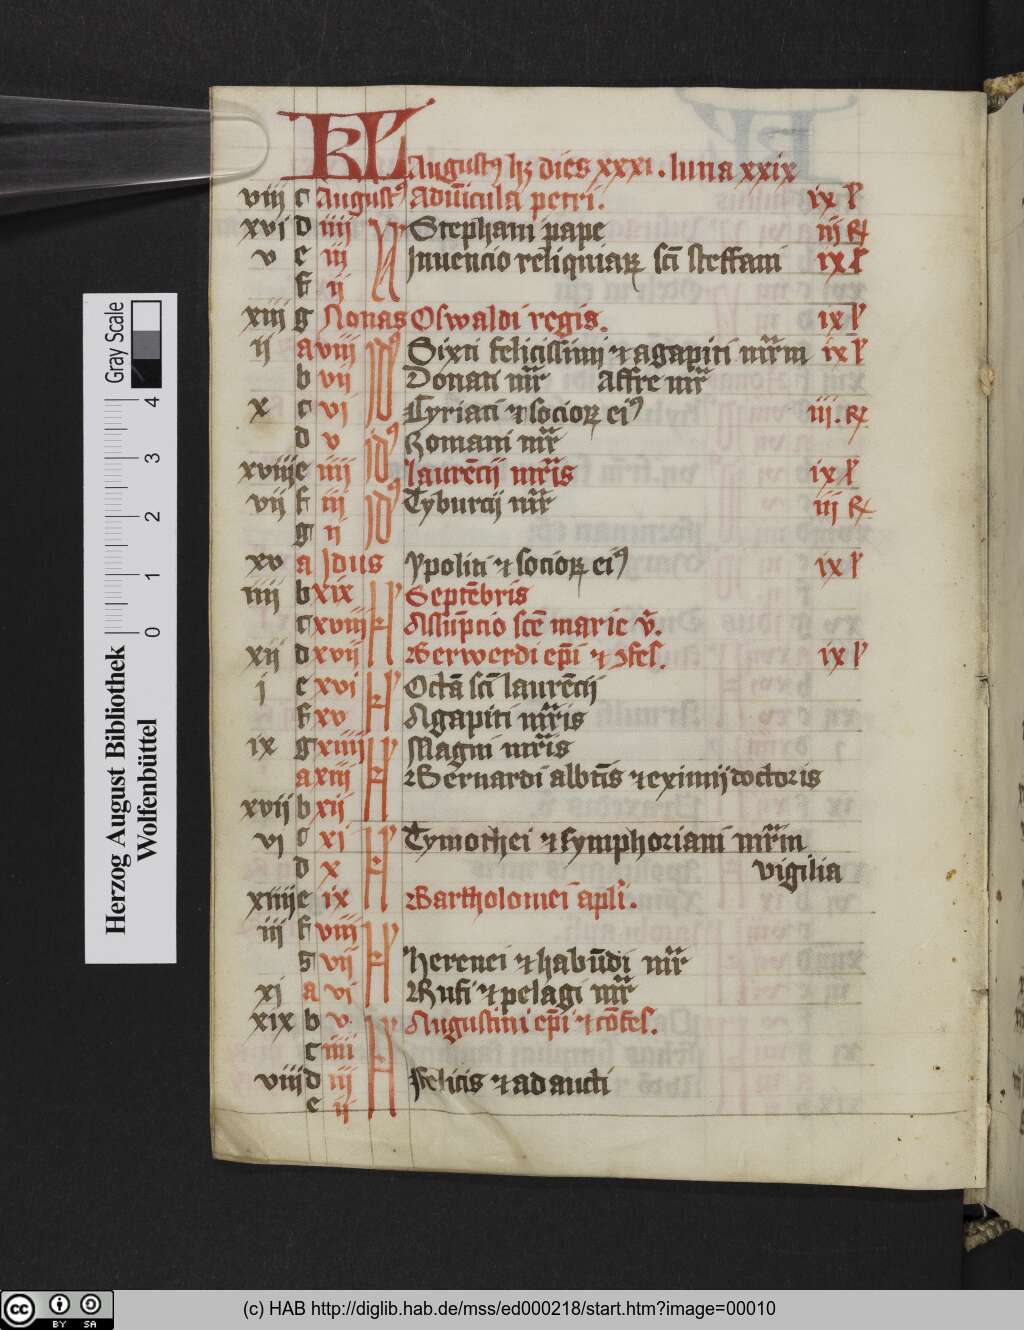 KL Augustꝰ hꝫ dies xxxi . luna xxix
viii c augustꝰ Aduīcula petri. ix lͨ
xvi d iiii N Stephani pape iii R
v e iii Inuencio reliquiaꝝ scī steffani ix lͨ
f ii
xiii g Nonas Oswaldi regis. ix lͨ
ii a viii Idꝰ Sixti felicissimi ⁊ agapiti mr̄m ix lͨ
b vii Donati mr̄ Affre mr̄
x c vi Cyriaci ⁊ socioꝝ eiꝰ iii. R
d v idꝰ Romani mr̄
xviii e iiii laurēcij mr̄is ix lͨ
vii f iii Idꝰ Tyburcij mr̄ iii R
g ii
xv a Idus Ypoliti ⁊ socioꝝ eiꝰ ix lͨ
iiii b xix kł Septēbris
c xviii Assūpcio scē marie v̄.
xii d xvii Berwerdi ep̄i ⁊ ꝯfes. ix lͨ
j e xvi kł Octā scī laurēcij
f xv Agapiti mr̄is
ix g xiiii kł Magni mr̄is
a xiii Bernardi abb̄tis ⁊ eximij doctoris
xvii b xii
vi c xi kł Tymothei ⁊ symphoriani mr̄m
d x vigilia
xiiii e ix Bartholomei apl̄i.
iii f viii kł
g vii Herenei ⁊ habūdi mr̄
xi a vi Rufi ⁊ pelagi mr̄
xix b v Augustini ep̄i ⁊ cōfes.
c iiii kł
viii d iii Felicis ⁊ adaucti
e ii
Herzog August Bibliothek
Wolfenbüttel
0 1 2 3 4
Gray Scale
cc BY SA
(c) HAB http://diglib.hab.de/mss/ed000218/start.htm?image=00010